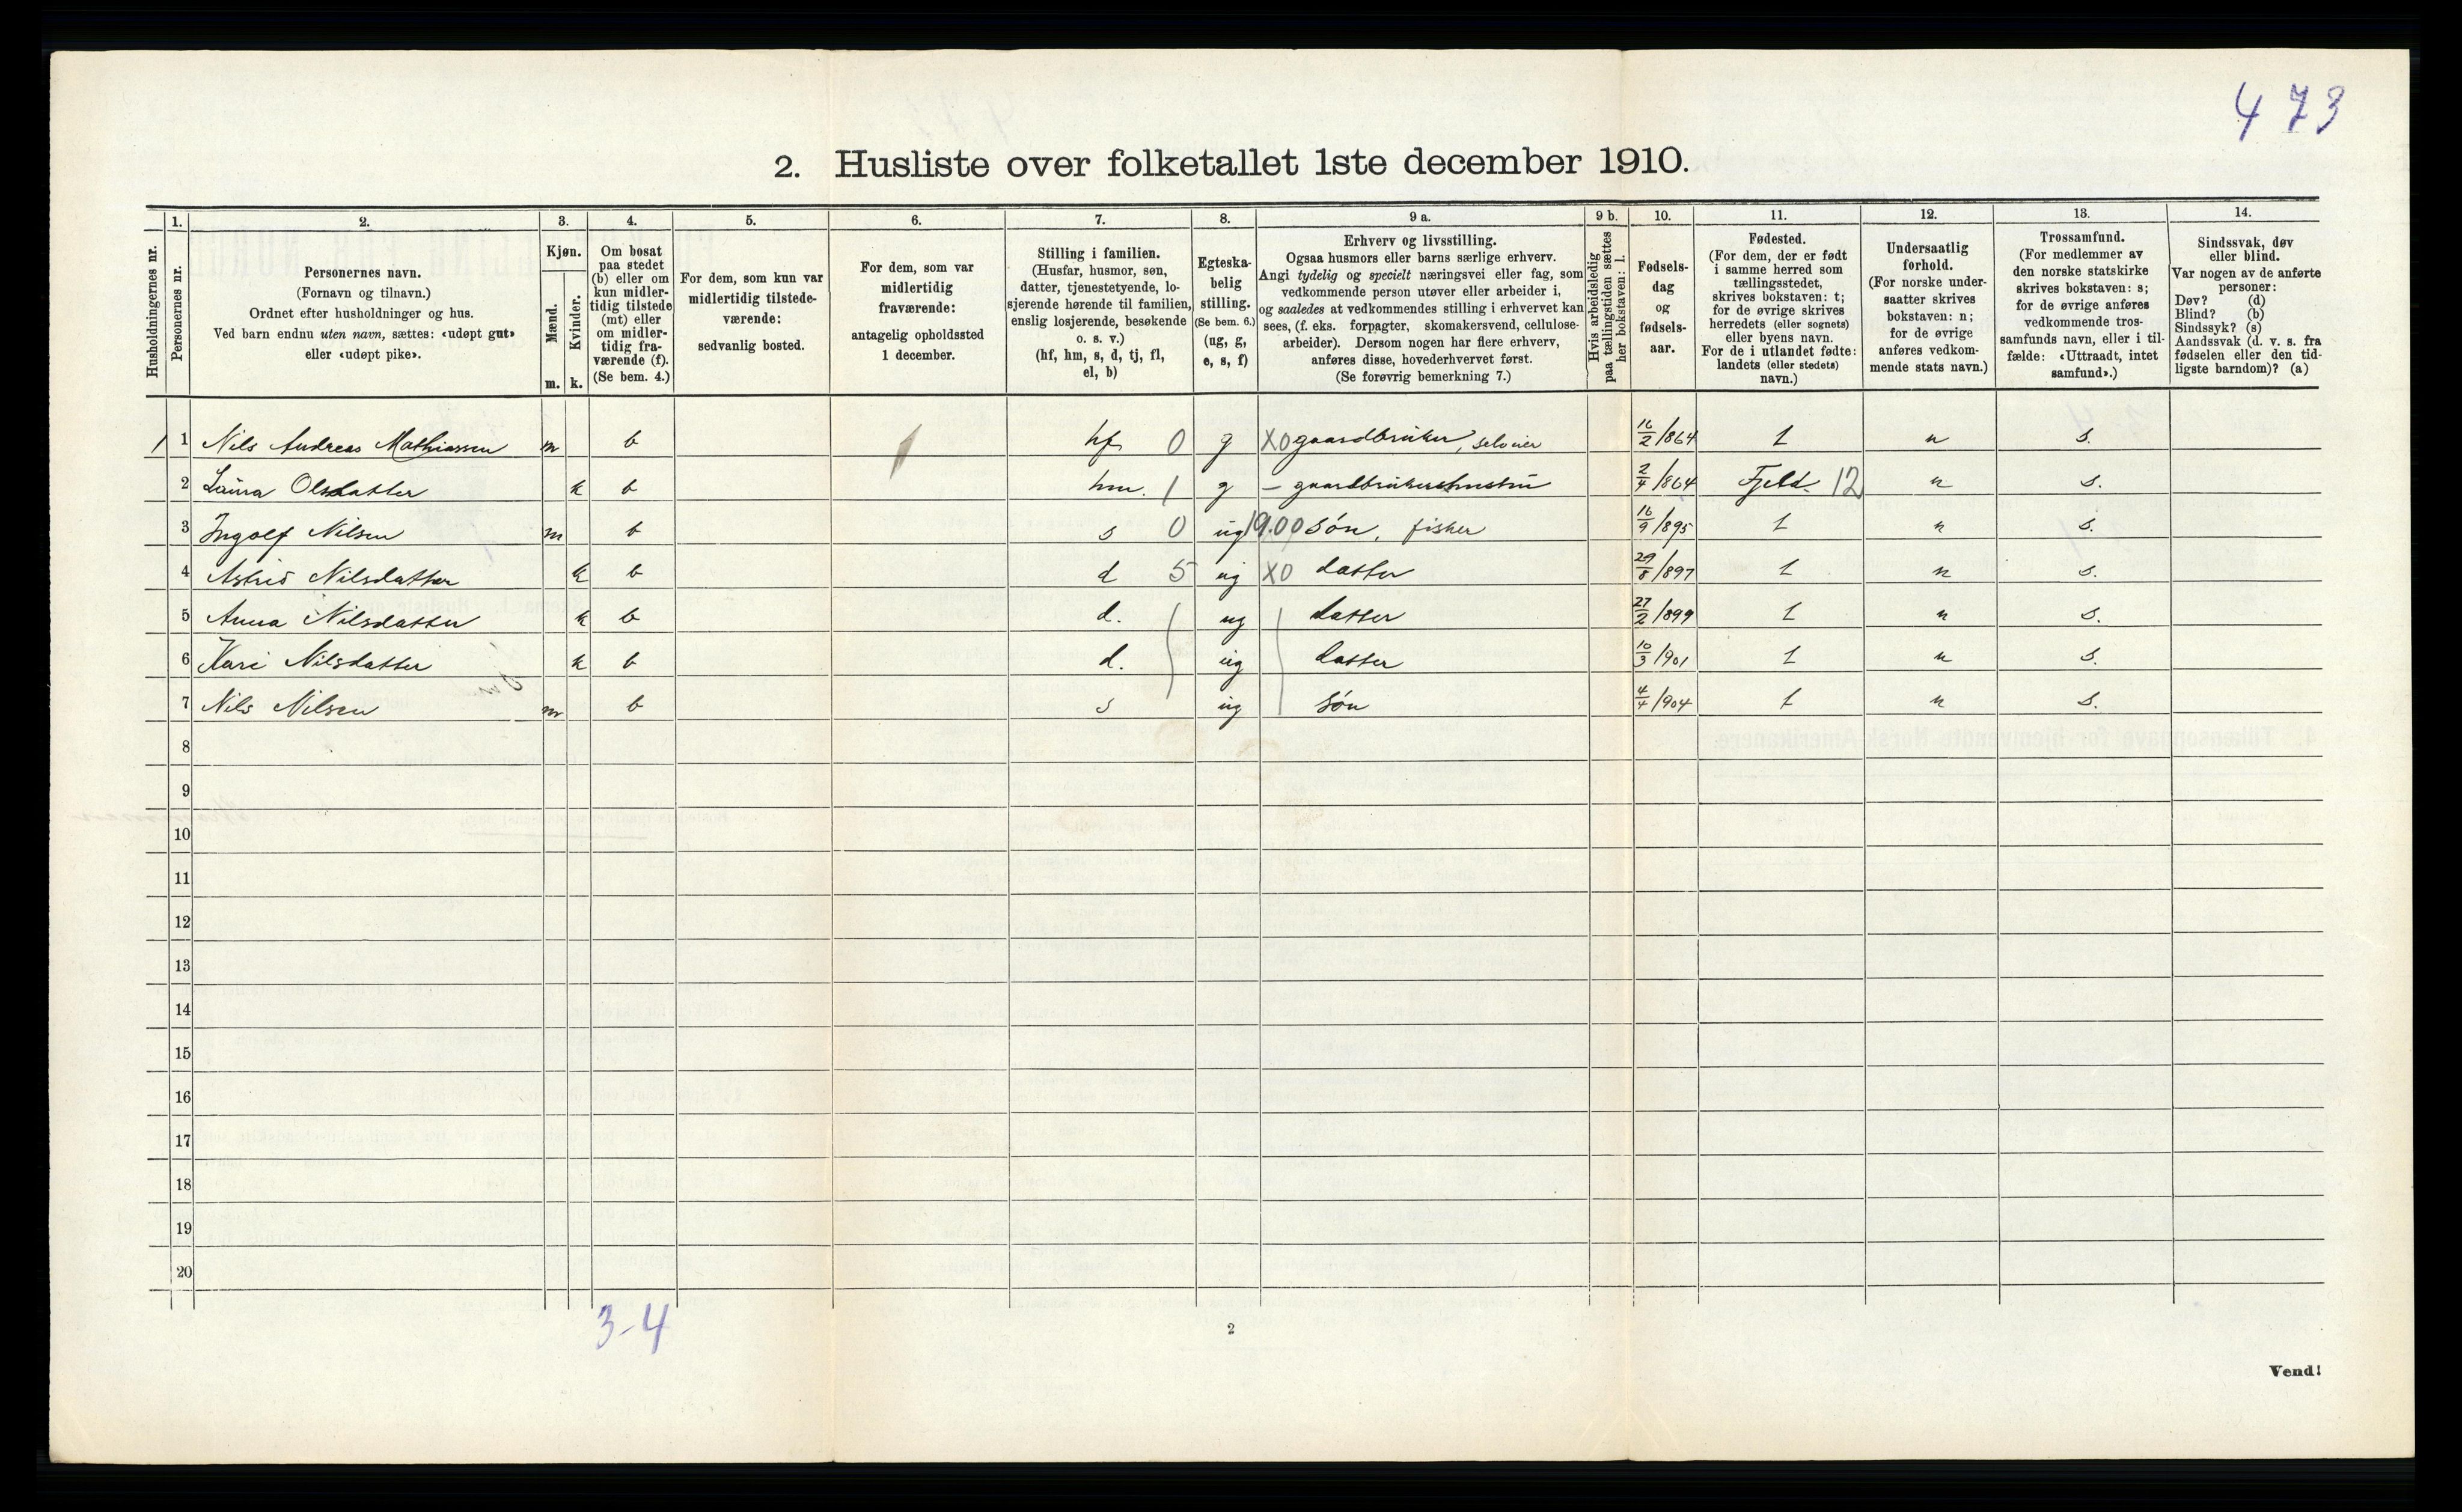 473
2. Husliste over folketallet 1ste december 1910.
1. 2. 3. 4. 5. 6. 7. 8. 9 a. 9 b. 10. 11. 12. 13. 14.
Husholdningernes nr.
Personernes nr.
Personernes navn.
(Fornavn og tilnavn.)
Ordnet efter husholdninger og hus.
Ved barn endnu uten navn, sættes: «udøpt gut»
eller «udøpt pike».
Kjøn.
Mænd.
Kvinder.
m. k.
Om bosat
paa stedet
(b) eller om
kun midler-
tidig tilstede
(mt) eller
om midler-
tidig fra-
værende (f).
(Se bem. 4.)
For dem, som kun var
midlertidig tilstede-
værende:
sedvanlig bosted.
For dem, som var
midlertidig
fraværende:
antagelig opholdssted
1 december.
Stilling i familien.
(Husfar, husmor, søn,
datter, tjenestetyende, lo-
sjerende hørende til familien,
enslig losjerende, besøkende
o. s. v.)
(hf, hm, s, d, tj, fl,
el, b)
Egteska-
belig
stilling.
(Se bem. 6.)
(ug, g,
e, s, f)
Erhverv og livsstilling.
Ogsaa husmors eller barns særlige erhverv.
Angi tydelig og specielt næringsvei eller fag, som
vedkommende person utøver eller arbeider i,
og saaledes at vedkommendes stilling i erhvervet kan
sees, (f. eks. forpagter, skomakersvend, cellulose-
arbeider). Dersom nogen har flere erhverv,
anføres disse, hovederhvervet først.
(Se forøvrig bemerkning 7.)
Hvis arbeidsledig
paa tællingstiden sættes
her bokstaven: l.
Fødsels-
dag
og
fødsels-
aar.
Fødested.
(For dem, der er født
i samme herred som
tællingsstedet,
skrives bokstaven: t;
for de øvrige skrives
herredets (eller sognets)
eller byens navn.
For de i utlandet fødte:
landets (eller stedets)
navn.)
Undersaatlig
forhold.
(For norske under-
saatter skrives
bokstaven: n;
for de øvrige
anføres vedkom-
mende stats navn.)
Trossamfund.
(For medlemmer av
den norske statskirke
skrives bokstaven: s;
for de øvrige anføres
vedkommende tros-
samfunds navn, eller i til-
fælde: «Uttraadt, intet
samfund».)
Sindssvak, døv
eller blind.
Var nogen av de anførte
personer:
Døv? (d)
Blind? (b)
Sindssyk? (s)
Aandssvak (d. v. s. fra
fødselen eller den tid-
ligste barndom)? (a)
1 1 Nils Andreas Mathiassen m b 1 hf 0 g X0 gaardbruker, selveier 16/2/864 t n s.
2 Laura Olsdatter k b hm. 1 g – gaardbrukershustru 2/4/864 Fjeld. 12 n s.
3 Ingolf Nilsen m b s 0 ug 19.00 søn, fisker 16/9/895 t n s.
4 Astrid Nilsdatter k b d 5 ug X0 datter 29/8/897 t n s.
5 Anna Nilsdatter k b d. ug datter 27/2/899 t n s.
6 Kari Nilsdatter k b d. ug datter 10/3/901 t n s.
7 Nils Nilsen m b s ug søn 4/4/904 t n s.
8
9
10
11
12
13
14
15
16
17
18
19
20
3-4
2
Vend!